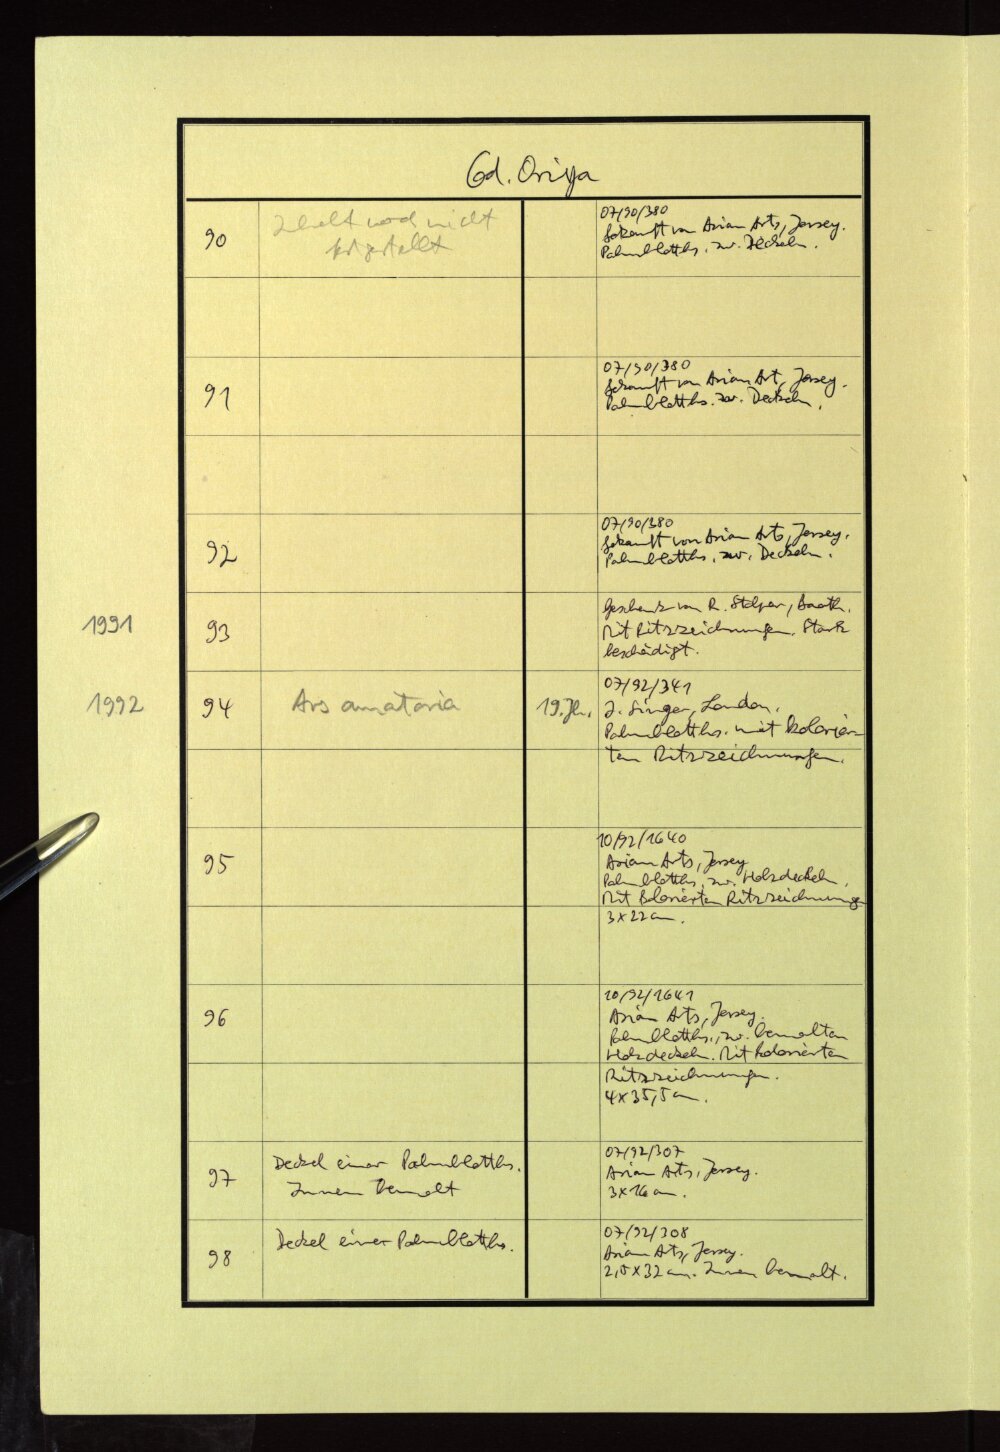 Cd. Oriya
90
Inhalt noch nicht
festgestellt
07/90/380
Gekauft von Asian Arts, Jersey.
Palmblatths. zw. Deckeln.
91
07/90/380
Gekauft von Asian Art, Jersey.
Palmblatths. zw. Deckeln.
92
07/90/380
Gekauft von Asian Arts, Jersey.
Palmblatths. zw. Deckeln.
1991
93
Geschenk von R.
Mit Ritzzeichnungen. Stark
beschädigt.
1992
94
Ars amatoria
19. Jh.
07/92/341
J. Singer, London.
Palmblatths. mit kolorier-
ten Ritzzeichnungen.
95
10/92/1640
Asian Arts, Jersey
Palmblatths. zw. Holzdeckeln.
Mit kolorierten Ritzzeichnungen
3 x 22 cm.
96
10/92/1641
Asian Arts, Jersey.
Palmblatths., zw. bemalten
Holzdeckeln. Mit kolorierten
Ritzzeichnungen.
4 x 35,5 cm.
97
Deckel einer Palmblatths.
Innen bemalt
07/92/307
Asian Arts, Jersey.
3 x 16 cm.
98
Deckel einer Palmblatths.
07/92/308
Asian Arts, Jersey.
2,5 x 32 cm. Innen bemalt.